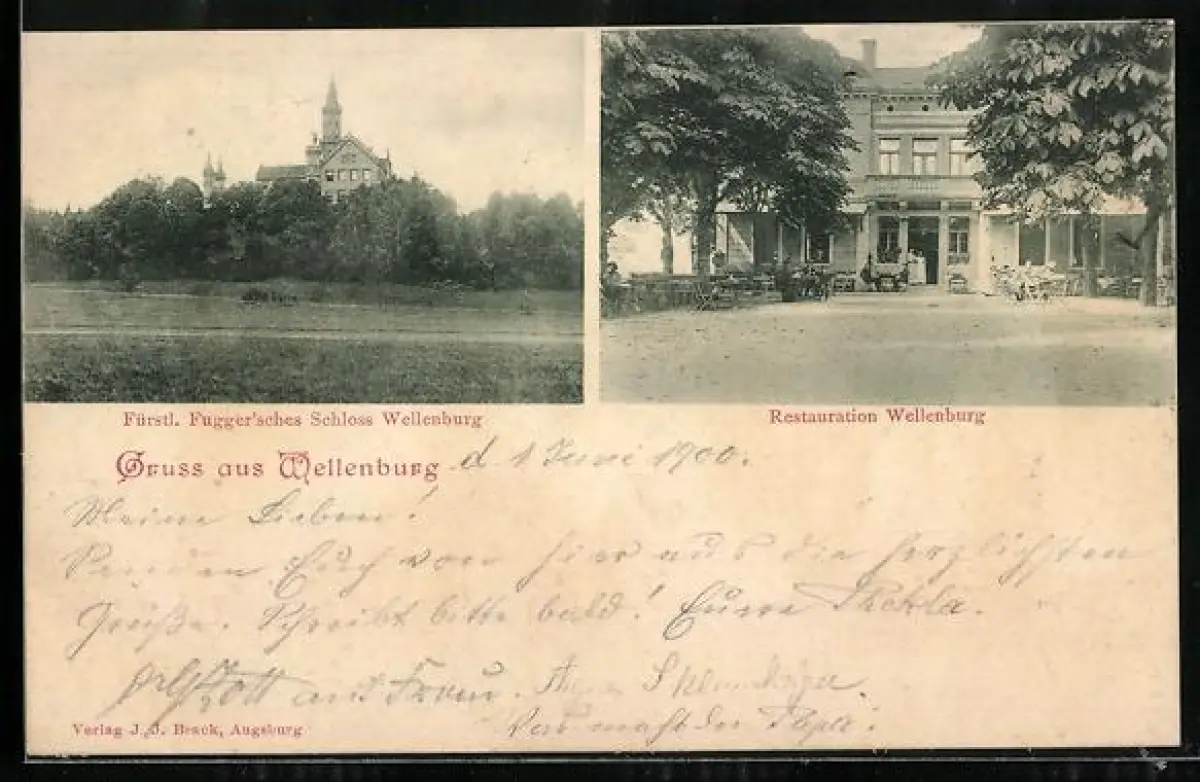 Fürstl. Fugger'sches Schloss Wellenburg
Restauration Wellenburg
Gruss aus Wellenburg d 1 Juni 1900.
Meine Lieben!
Senden Euch von hier aus die herzlichsten
Grüße. Schreibt bitte bald! Eure Thekla.
und Frau.
Was macht der
Verlag J. J. Brack, Augsburg